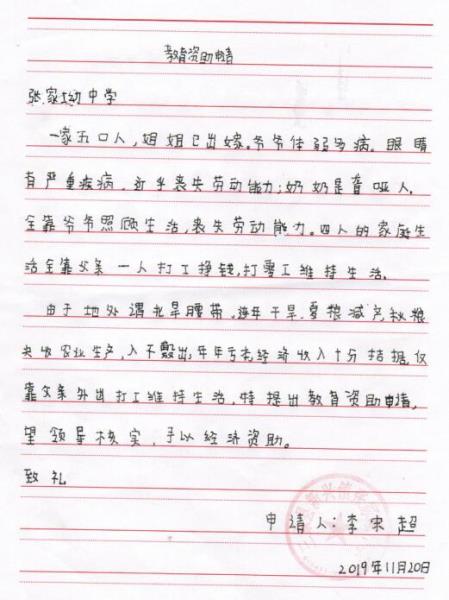 教育资助申请
张家坳中学
一家五口人，姐姐已出嫁。爷爷体弱多病。眼睛
有严重疾病，近乎丧失劳动能力；奶奶是聋哑人，
全靠爷爷照顾生活，丧失劳动能力。四人的家庭生
活全靠父亲一人打工挣钱，打零工维持生活。
由于地处渭北旱腰带，每年干旱，夏粮减产，秋粮
失收农业生产，入不敷出，年年亏损经济收入十分拮据，仅
靠父亲外出打工维持生活，特提出教育资助申请，
望领导核实，予以经济资助。
致礼
申请人：李宋超
2019年11月20日